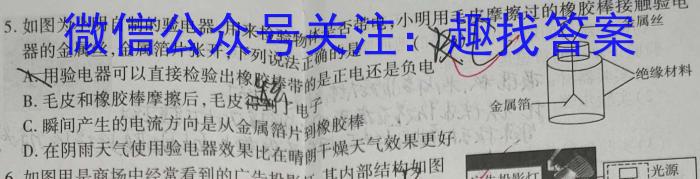 5.如图为 自制的验电器,用来 验物体是否带电,小明用毛皮摩擦过的橡胶棒接触验电
器的金属丝,金属箔片张开,下列说法正确的是
微信公众号关注:趣找答案
A.用验电器可以直接检验出橡胶棒带的是正电还是负电
B.毛皮和橡胶棒摩擦后,毛皮得到了电子
C.瞬间产生的电流方向是从金属箔片到橡胶棒
D.在阴雨天气使用验电器效果比在晴朗干燥天气效果更好
金属丝
绝缘材料
金属箔
6.如图甲是商场中经常看到的广告投影灯,其内部结构如图
广告投影灯
光源